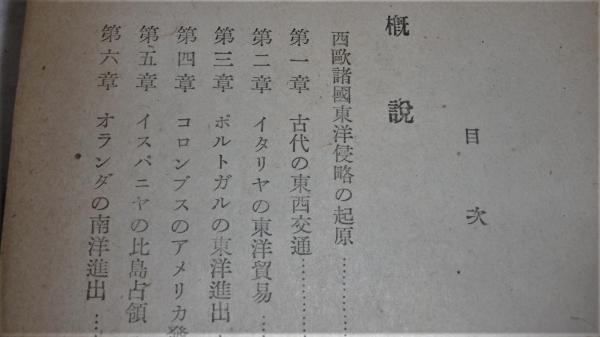 目次
概説
西歐諸國東洋侵略の起原…………
第一章 古代の東西交通…………
第二章 イタリヤの東洋貿易…
第三章 ポルトガルの東洋進出
第四章 コロンブスのアメリカ發
第五章 イスパニヤの比島占領
第六章 オランダの南洋進出…